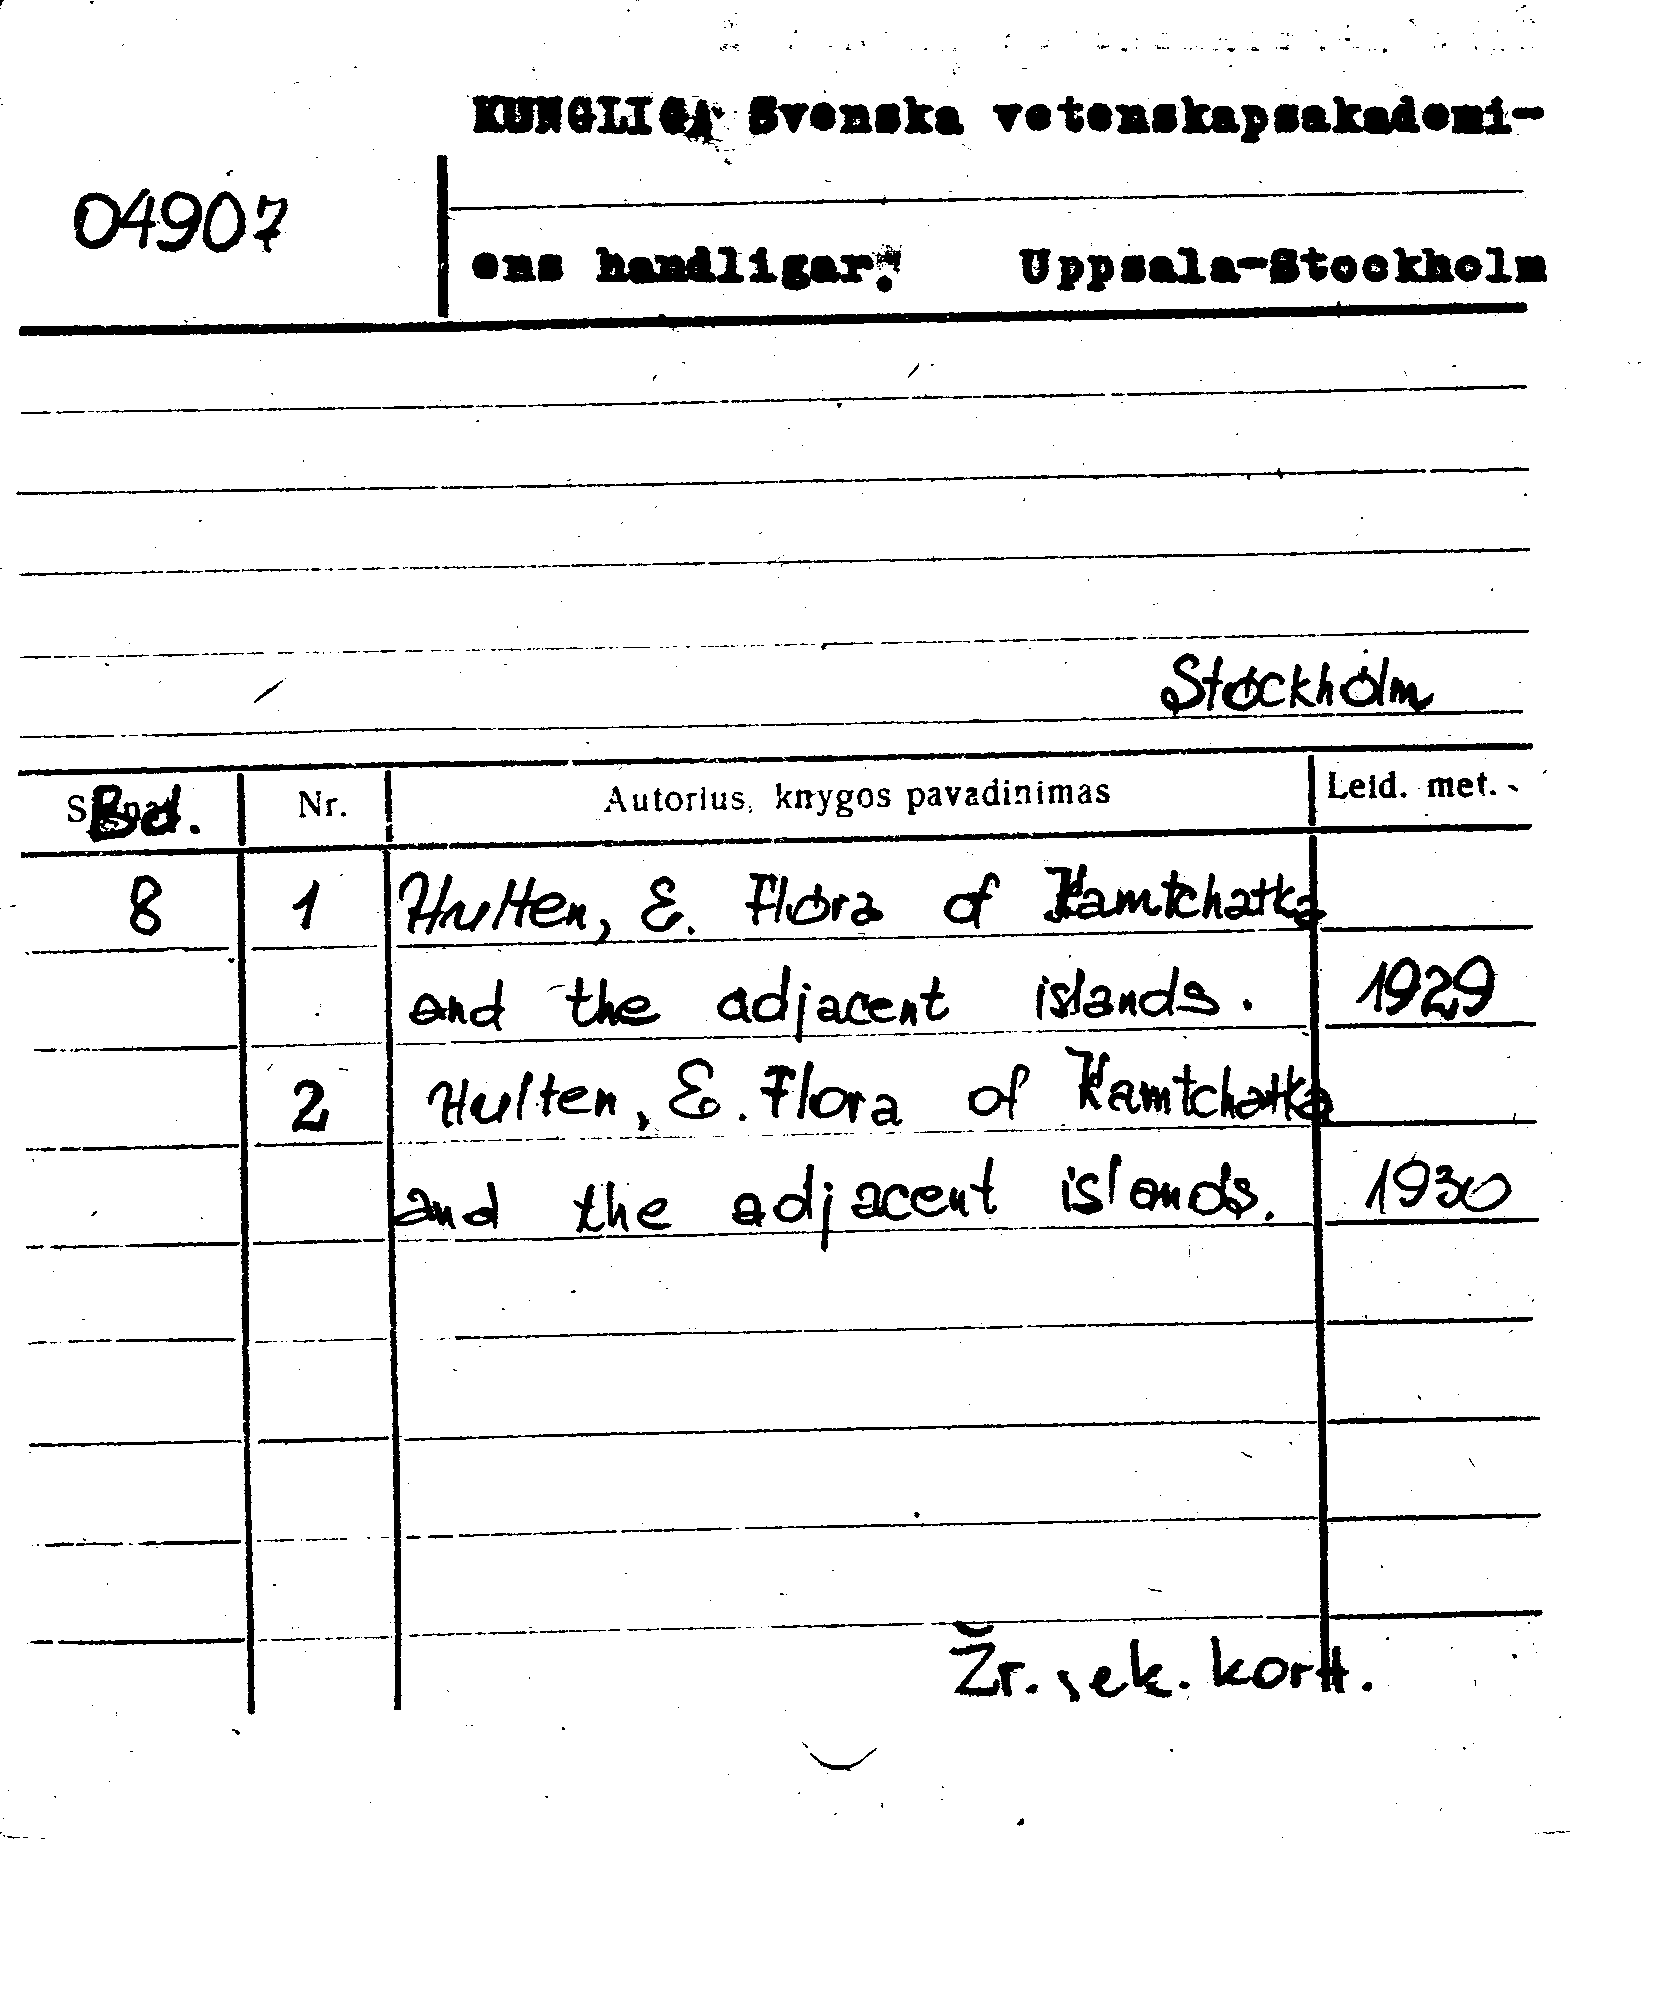 KUNGLIGA Svenska vetenskapsakademi-
04907
ens handligar. Uppsala-Stockholm
Stockholm
Bd. Nr. Autorius, knygos pavadinimas Leid. met.
8 1 Hulten, E. Flora of Kamtchatka
and the adjacent islands. 1929
2 Hulten, E. Flora of Kamtchatka
and the adjacent islands. 1930
Žr. sek. kort.